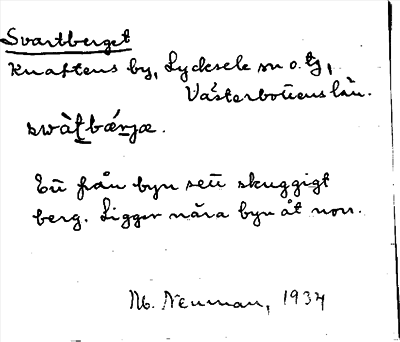 Svartberget
Knaftens by, Lycksele sn o. tg,
Västerbottens län.
swàt̲bǽrjæ.
Ett från byn sett skuggigt
berg. Ligger nära byn åt norr.
M. Neuman, 1934